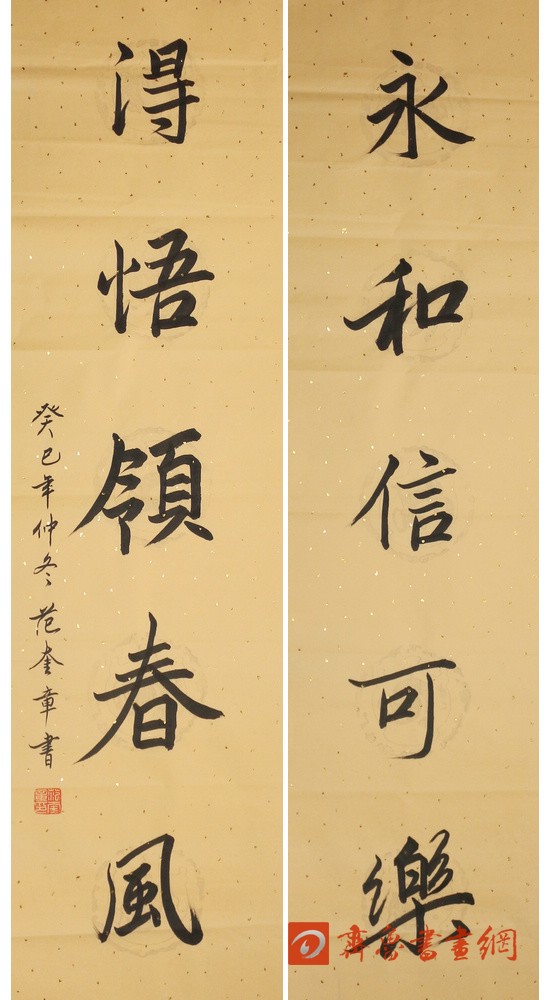 永和信可樂
得悟領春風
癸巳年仲冬范奎章書
齊魯書畫網